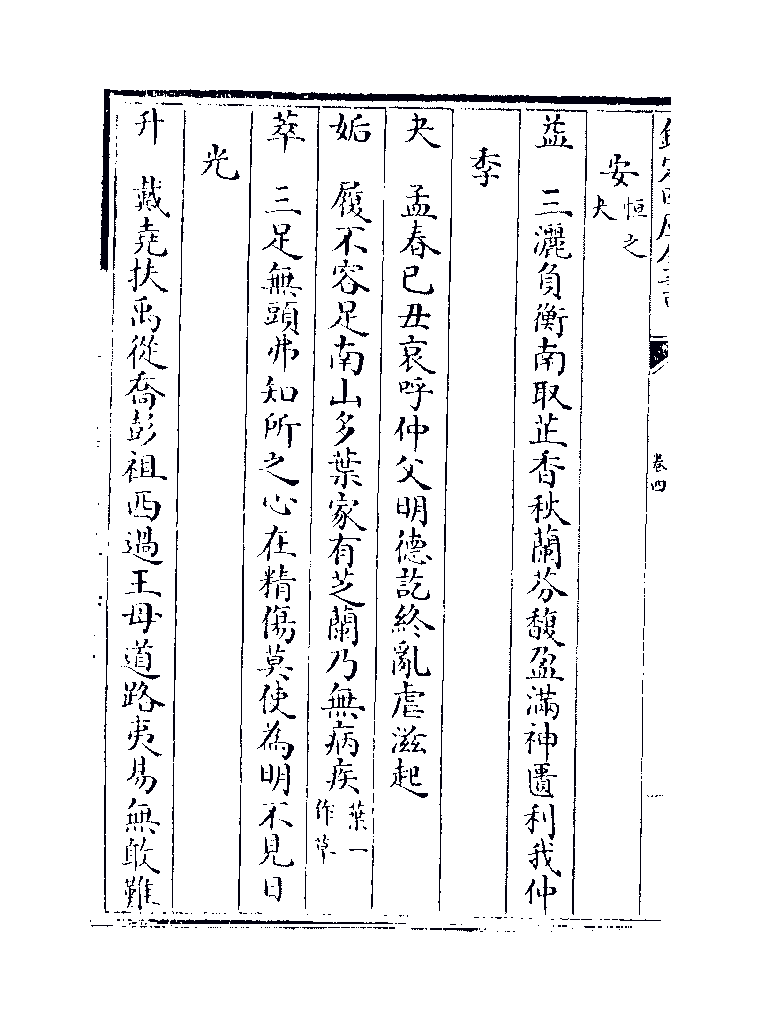 欽定四庫全書
卷四
安恒之
大
益　三灑負衡南取芷香秋蘭芬馥盈滿神匱利我仲
季
夬　孟春己丑哀呼仲父明德訖終亂虐滋起
姤　履不容足南山多葉家有芝蘭乃無病疾葉一
作草
萃　三足無頭弗知所之心在精傷莫使為明不見日
光
升　戴堯扶禹從喬彭祖西過王母道路夷易無敢難